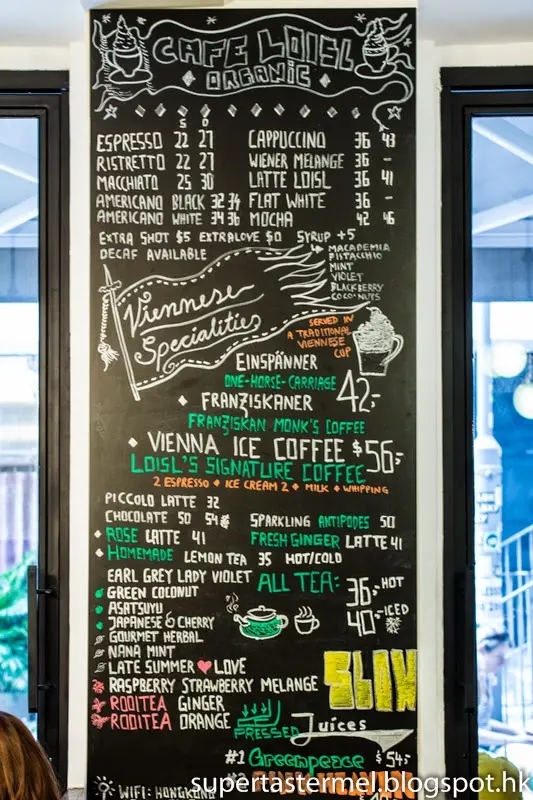 CAFE LOISL
ORGANIC
S D
ESPRESSO 22 27
RISTRETTO 22 27
MACCHIATO 25 30
AMERICANO BLACK 32 34
AMERICANO WHITE 34 36
CAPPUCCINO 36 43
WIENER MELANGE 36 -
LATTE LOISL 36 41
FLAT WHITE 36 -
MOCHA 42 46
EXTRA SHOT $5 EXTRALOVE $0 SYRUP +5
DECAF AVAILABLE
MACADEMIA
PISTACCHIO
MINT
VIOLET
BLACKBERRY
COCONUTS
Viennese
Specialities
SERVED IN
A TRADITIONAL
VIENNESE
CUP
EINSPÄNNER
ONE-HORSE-CARRIAGE 42,-
FRANZISKANER
FRANZISKAN MONK'S COFFEE
VIENNA ICE COFFEE $56,-
LOISL'S SIGNATURE COFFEE
2 ESPRESSO ICE CREAM 2 MILK WHIPPING
PICCOLO LATTE 32
CHOCOLATE 50 54
ROSE LATTE 41
HOMEMADE LEMON TEA 35 HOT/COLD
SPARKLING ANTIPODES 50
FRESH GINGER LATTE 41
EARL GREY LADY VIOLET
GREEN COCONUT
ASATSUYU
JAPANESE & CHERRY
GOURMET HERBAL
NANA MINT
LATE SUMMER LOVE
RASPBERRY STRAWBERRY MELANGE
ROOITEA GINGER
ROOITEA ORANGE
ALL TEA: 36,- HOT
40,- ICED
SLOW
PRESSED Juices
#1 Greenpeace $54,-
WIFI: HONGKONG
supertastermel.blogspot.hk